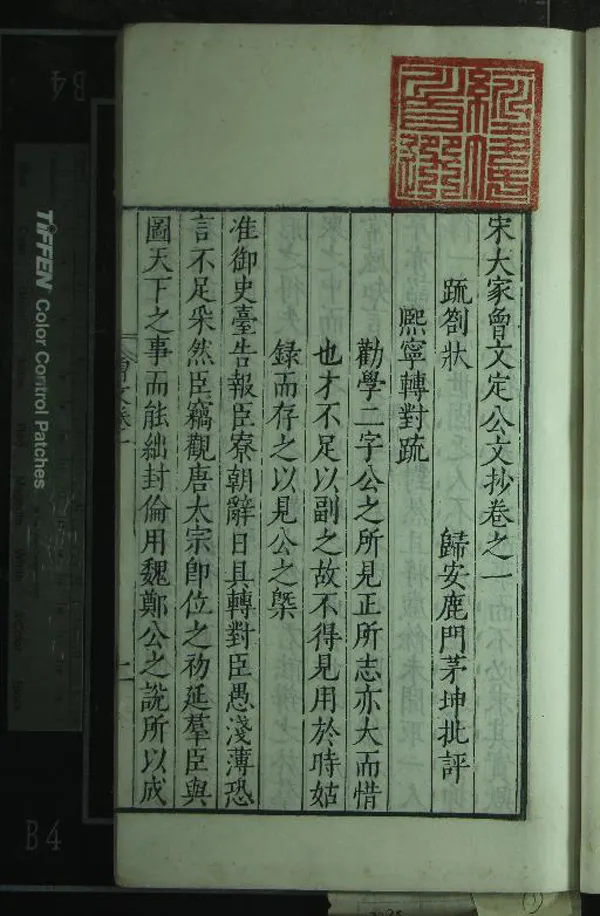 宋大家曾文定公文抄卷之一
歸安鹿門茅坤批評
疏劄狀
熙寧轉對疏
勸學二字公之所見正所志亦大而惜
也才不足以副之故不得見用於時姑
録而存之以見公之槩
准御史臺告報臣寮朝辭日具轉對臣愚淺薄恐
言不足采然臣竊觀唐太宗即位之初延羣臣與
圖天下之事而能絀封倫用魏鄭公之說所以成
曾文卷一
TIFFEN Color Control Patches
B4
B4